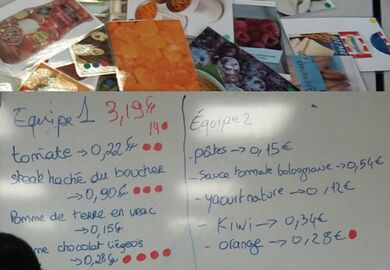 Equipe 1 3,19€
14
tomate → 0,22€
steak haché du boucher
→ 0,90€
Pomme de terre en vrac
→ 0,15€
chocolat liégeois
→ 0,28€
Équipe 2
- pâtes → 0,15€
- Sauce tomate bolognaise → 0,54€
- yaourt nature → 0,12€
- Kiwi → 0,34€
- orange → 0,28€